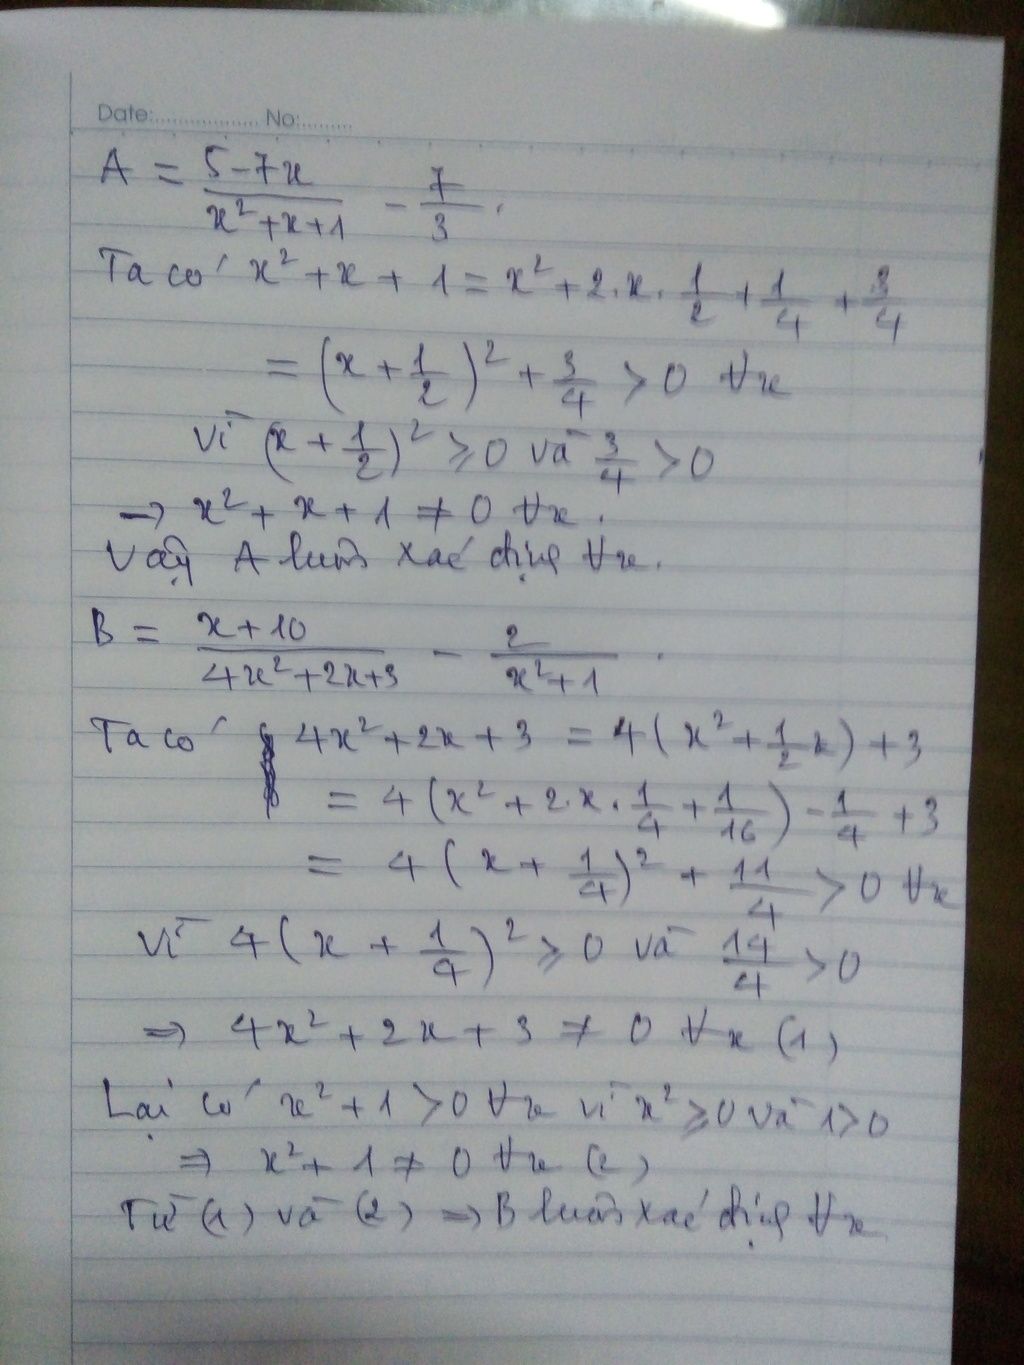 Date:.................. No:.........
A = \frac{5-7x}{x²+x+1} - \frac{7}{3}.
Ta có x² + x + 1 = x² + 2.x.\frac{1}{2} + \frac{1}{4} + \frac{3}{4}
= (x + \frac{1}{2})² + \frac{3}{4} > 0 ∀x
vì (x + \frac{1}{2})² ≥ 0 và \frac{3}{4} > 0
→ x² + x + 1 ≠ 0 ∀x.
Vậy A luôn xác định ∀x.
B = \frac{x+10}{4x²+2x+3} - \frac{2}{x²+1}.
Ta có 4x² + 2x + 3 = 4(x² + \frac{1}{2}x) + 3
= 4(x² + 2.x.\frac{1}{4} + \frac{1}{16}) - \frac{1}{4} + 3
= 4(x + \frac{1}{4})² + \frac{11}{4} > 0 ∀x
vì 4(x + \frac{1}{4})² ≥ 0 và \frac{11}{4} > 0
⇒ 4x² + 2x + 3 ≠ 0 ∀x (1)
Lại có x² + 1 > 0 ∀x vì x² ≥ 0 và 1 > 0
⇒ x² + 1 ≠ 0 ∀x (2)
Từ (1) và (2) ⇒ B luôn xác định ∀x